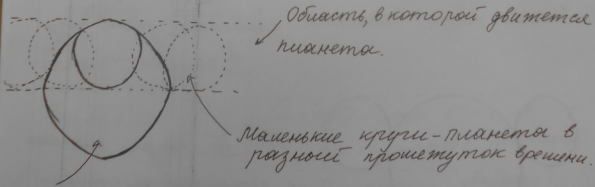 Область, в которой движется
планета.
Маленькие круги-планета в
разный промежуток времени.